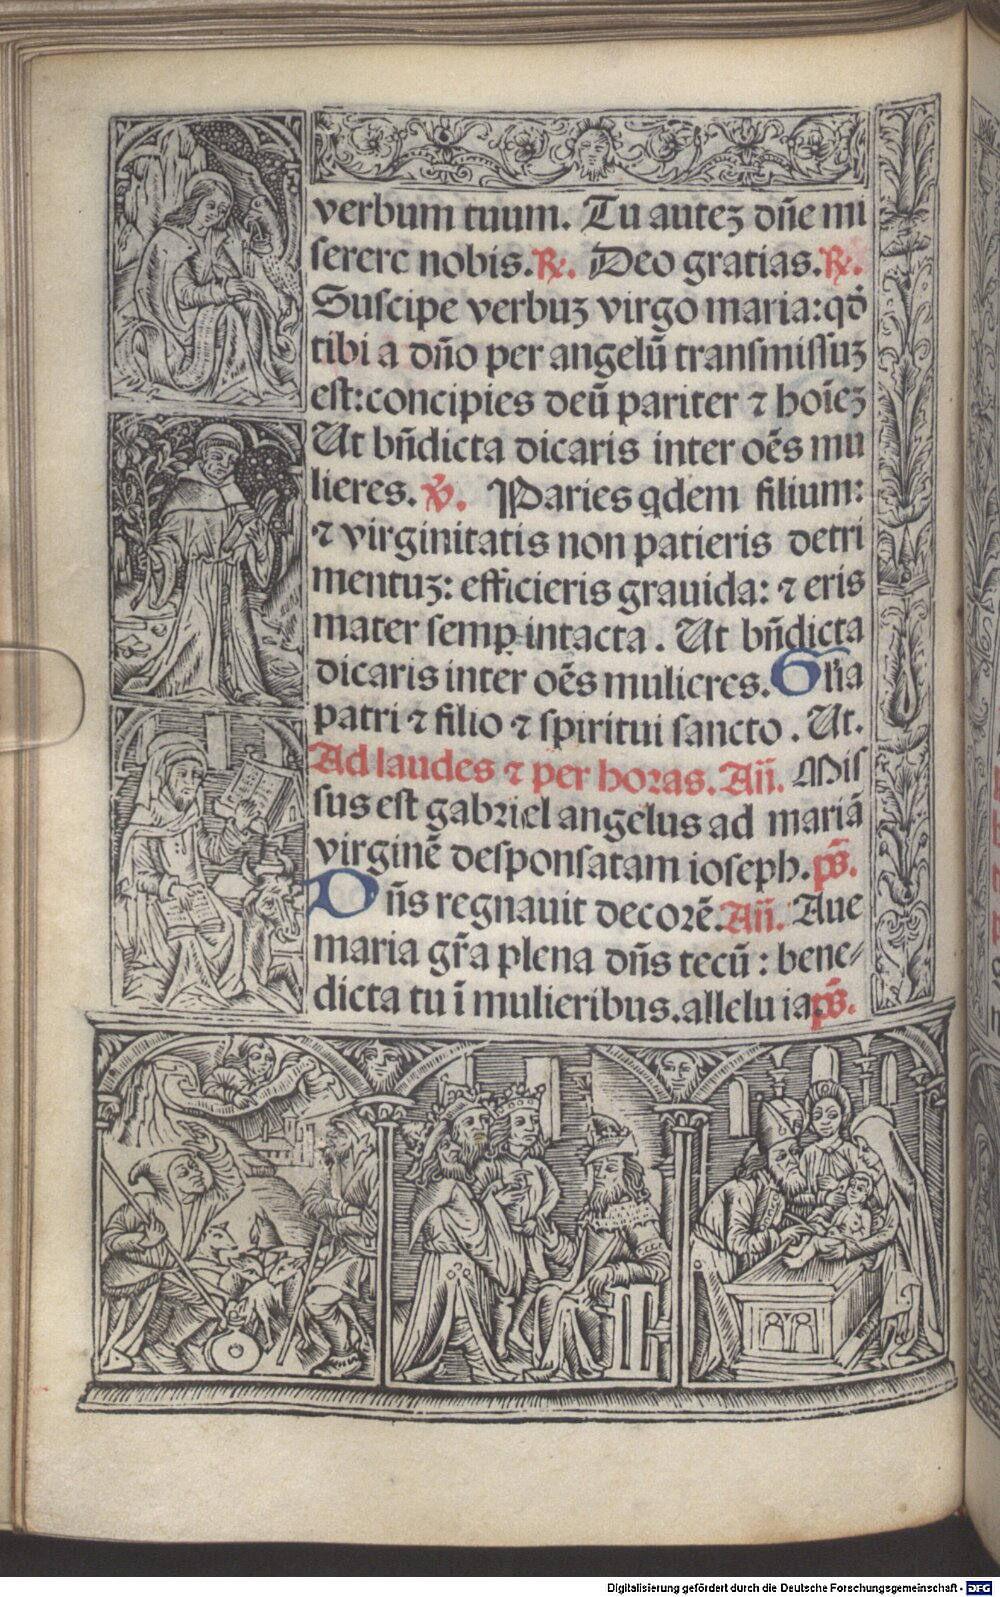 verbum tuum. Tu auteʒ dn̄e mi
ſerere nobis. ℞. Deo gratias. ℞.
Suſcipe verbuʒ virgo maria: qd̄
tibi a dn̄o per angelū tranſmiſſuʒ
eſt: concipies deū pariter ⁊ hoīeʒ
Ut bn̄dicta dicaris inter oēs mu
lieres. ℣. Paries qdem filium:
⁊ virginitatis non patieris detri
mentuʒ: efficieris grauida: ⁊ eris
mater ſemꝑ intacta. Ut bn̄dicta
dicaris inter oēs mulieres. Gl'ia
patri ⁊ filio ⁊ ſpiritui ſancto. Ut.
Ad laudes ⁊ per horas. Añ. Miſ
ſus eſt gabriel angelus ad mariā
virginē deſponſatam ioſeph. p̄s.
Dn̄s regnauit decorē. Añ. Aue
maria gr̄a plena dn̄s tecū: bene-
dicta tu ī mulieribus. alleluia p̄s.
Digitalisierung gefördert durch die Deutsche Forschungsgemeinschaft - DFG